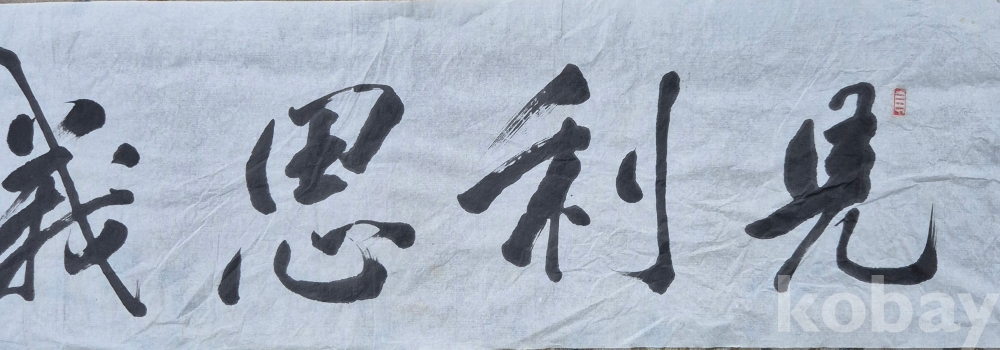 見利思義
kobay